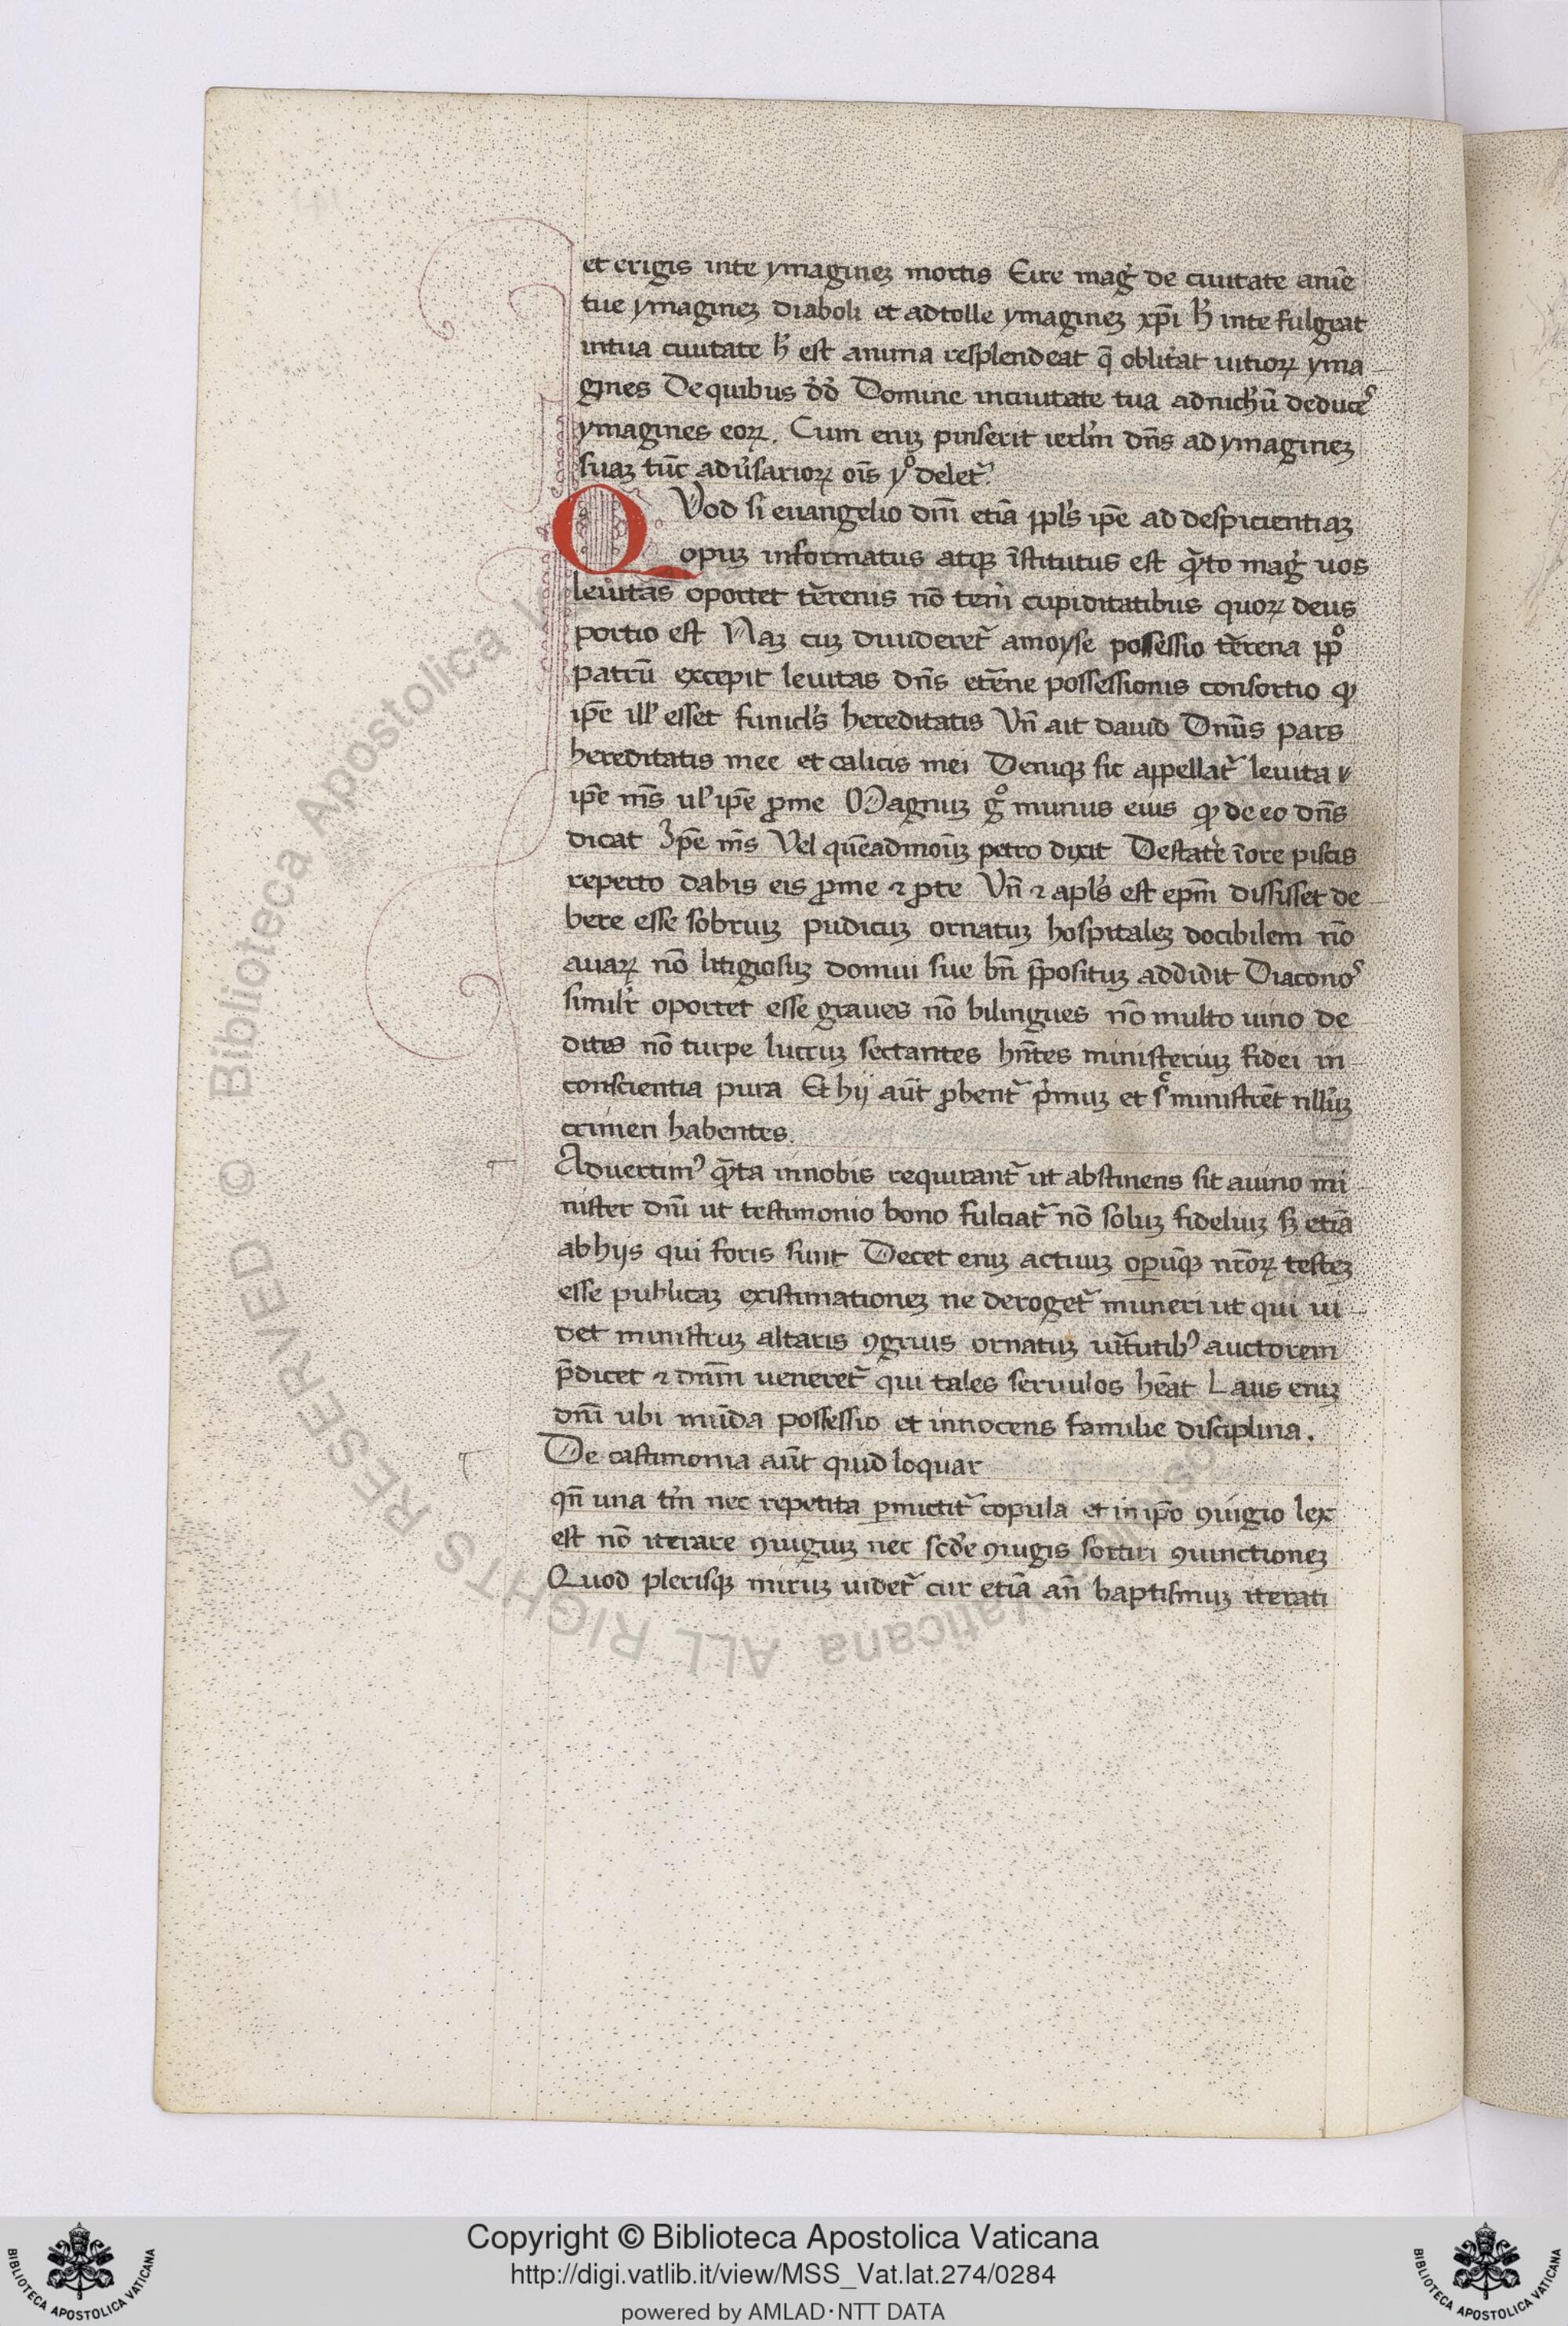 et erigis inte ymaginez mortis Eice mag̾ de ciuitate anīe
tue ymaginez diaboli et adtolle ymaginez xp̄i h̄ inte fulgeat
intua ciuitate h̄ est anima resplendeat q̄ oblit̾at uitioꝝ yma
gines Dequibus d̄d̄ Domine inciuitate tua adnichū deduceˀ
ymagines eoꝝ. Cum eniz pinserit ierl̄m dn̄s ad ymaginez
suaz tūc adu̾sarioꝝ oīs yͦ delet᷑.
QVod si euangelio dn̄i etiā ppl̄s ip̄e ad despicientiaz
opuz informatus atqꝫ īstitutus est q̄to mag̾ uos
leuitas oportet t̄renis nō teni̾ cupiditatibus quoꝝ deus
portio est Naz cuz diuideret᷑ amoyse possessio t̄rena ppͦ
patrū excepit leuitas dn̄s et̄ne possessionis consortio ꝙ
ip̄e ill̾ esset funicl̄s hereditatis Vn̄ ait dauid Dn̄us pars
hereditatis mee et calicis mei Deniqꝫ sic appellat᷑ leuita
ip̄e m̄s ul̾ ip̄e ꝓme Magnuz gͦ munus eius ꝙ de eo dn̄s
dicat Ip̄e m̄s Vel quēadmoūz petro dixit De statēr īore piscis
reperto dabis eis ꝓme ⁊ ꝓte Vn̄ ⁊ apl̄s est ep̄m dississet de
bere esse sobriuz pudicuz ornatuz hospitalez docibilem nō
auaꝝ nō litigiosuz domui sue bn̄ p̄posituz addidit Diaconoˀ
simil̾r oportet esse graues nō bilingues nō multo uino de
ditos nō turpe lucruz sectantes hn̄tes ministeriuz fidei in
conscientia pura Et hij aūt ꝓbent᷑ p̾muz et sͨ ministrēt nll̄uz
crimen habentes.
Aduertimˀ q̄ta innobis requirant᷑ ut abstinens sit auino mi
nister dn̄i ut testimonio bono fulciat᷑ nō soluz fideliuz sꝫ etiā
abhijs qui foris sunt Decet eniz actuuz oꝑūqꝫ nr̄oꝝ testez
esse publicaz existimationez ne deroget᷑ muneri ut qui ui
det ministruz altaris ꝯgruis ornatuz uir̄tutibˀ auctorem
p̄dicet ⁊ dn̄m ueneret᷑ qui tales seruulos hēat Laus eniz
dn̄i ubi mūda possessio et innocens familie disciplina.
De castimonia aūt quid loquar
qn̄ una tm̄ nec repetita ꝑmictit᷑ copula et in ip̄o ꝯiugio lex
est nō iterare ꝯiugiuz nec scd̄e ꝯiugis sortiri ꝯiunctionez
Quod plerisqꝫ miruz uidet᷑ cur etiā an̄ baptismuz iterati
© Biblioteca Apostolica Vaticana ALL RIGHTS RESERVED
Copyright © Biblioteca Apostolica Vaticana
http://digi.vatlib.it/view/MSS_Vat.lat.274/0284
powered by AMLAD·NTT DATA
BIBLIOTECA APOSTOLICA VATICANA
BIBLIOTECA APOSTOLICA VATICANA